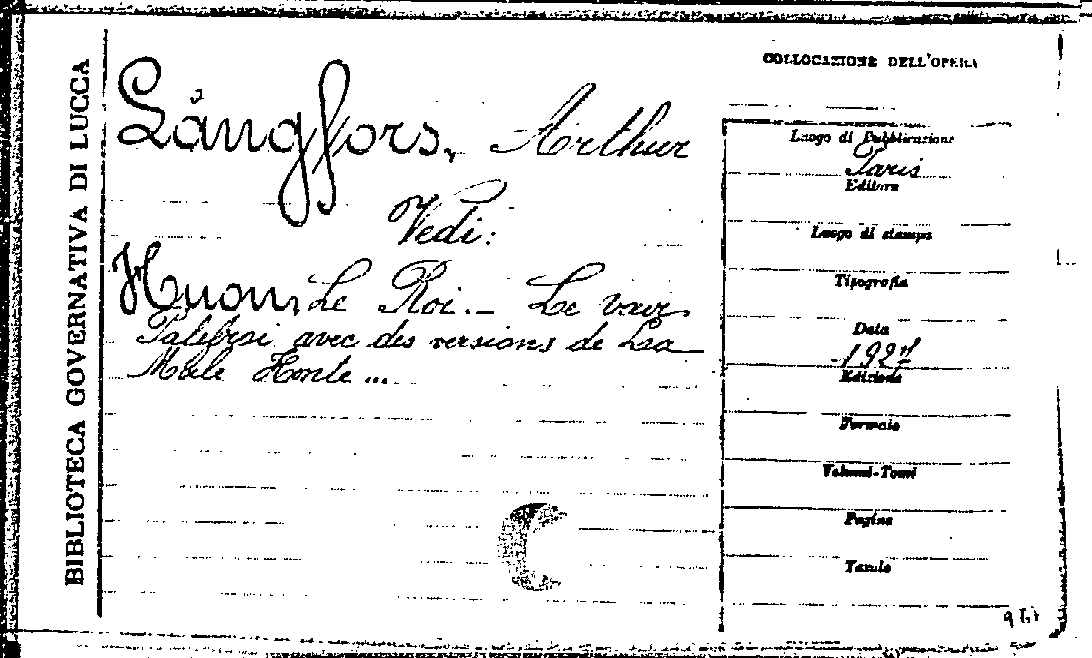 BIBLIOTECA GOVERNATIVA DI LUCCA
Långfors, Arthur
Vedi:
Huon, Le Roi. — Le vair
Palefroi avec des versions de La
Male Honte ...
COLLOCAZIONE DELL'OPERA
Luogo di Pubblicazione
Paris
Editore
Luogo di stampa
Tipografia
Data
1927
Edizione
Formato
Volumi-Tomi
Pagine
Tavole